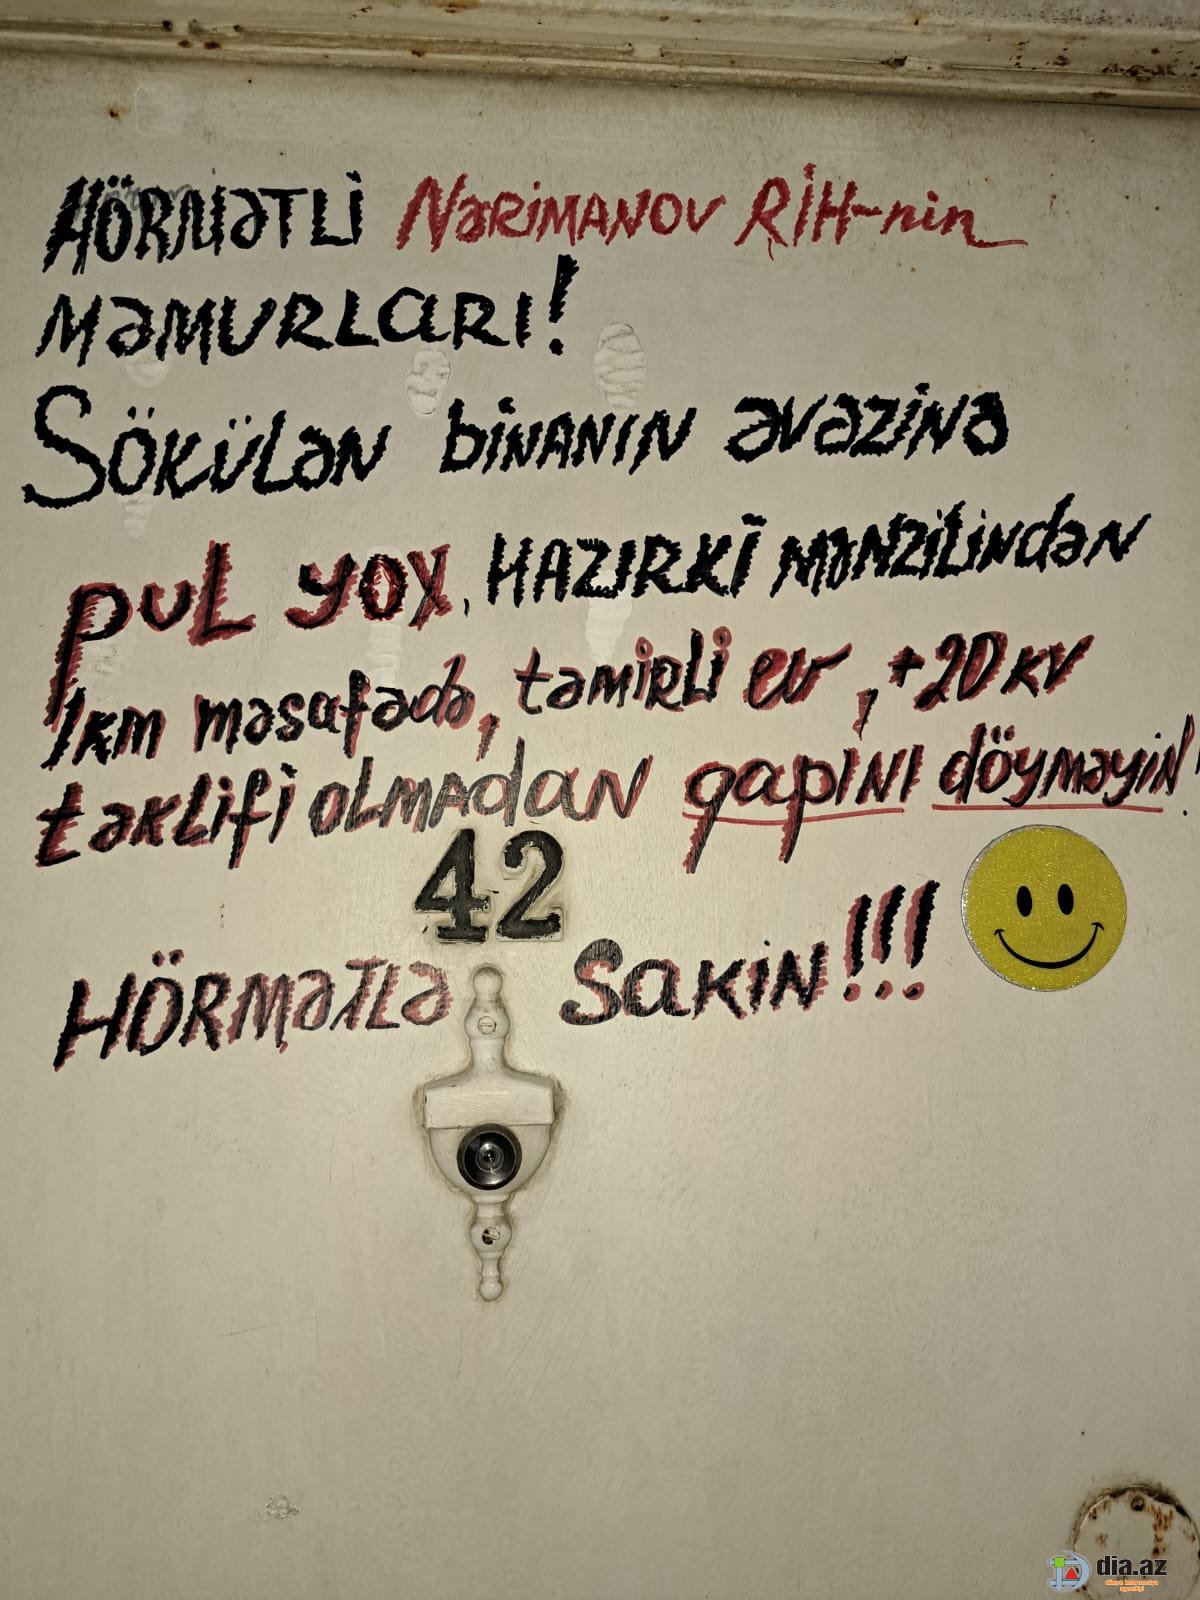 HÖRMƏTLİ NƏRİMANOV RİH-nin
MƏMURLARI!
SÖKÜLƏN BİNANIN ƏVƏZİNƏ
PUL YOX, HAZIRKİ MƏNZİLİNDƏN
1KM məsafədə, təmirli ev, +20 KV
təklifi OLMADAN qapını döyməyin!
42
HÖRMƏTLƏ SAKİN!!!
dia.az
dünya informasiya
agentliyi